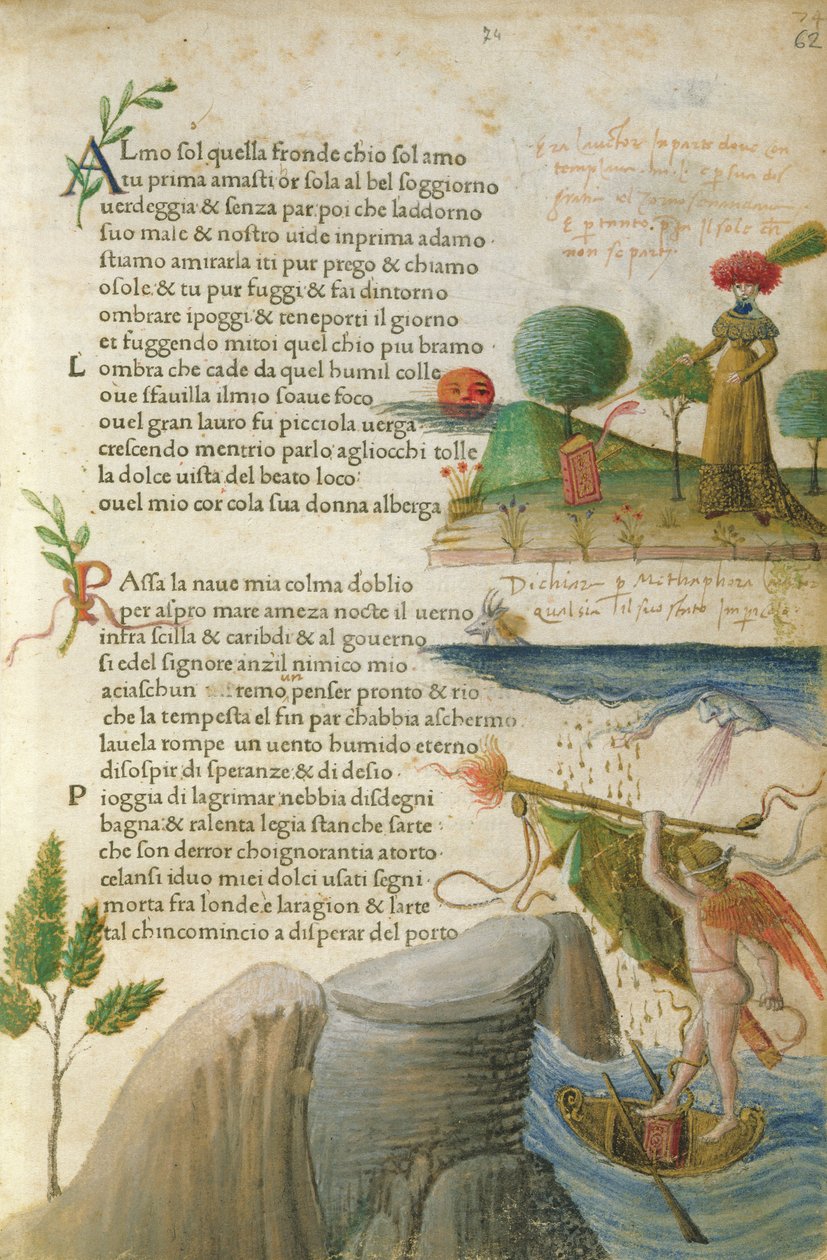 74
74
62
ALmo sol quella fronde chio sol amo
tu prima amasti or sola al bel soggiorno
uerdeggia & senza par poi che laddorno
suo male & nostro uide inprima adamo·
stiamo amirarla iti pur prego & chiamo
osole & tu pur fuggi & fai dintorno
ombrare ipoggi & teneporti il giorno
et fuggendo mitoi quel chio piu bramo·
Lombra che cade da quel humil colle
oue sfauilla ilmio soaue foco
ouel gran lauro fu picciola uerga·
crescendo mentrio parlo agliocchi tolle
la dolce uista del beato loco·
ouel mio cor cola sua donna alberga
Era lauctor In parte doue con
templaua
non se parti
PAssa la naue mia colma doblio
per aspro mare ameza nocte il uerno
infra scilla & caribdi & al gouerno
si edel signore anzil nimico mio·
aciaschun remo un penser pronto & rio
che la tempesta el fin par chabbia aschermo
lauela rompe un uento humido eterno
disospir di speranze & di desio·
Pioggia di lagrimar nebbia disdegni
bagna & ralenta legia stanche sarte·
che son derror choignorantia atorto·
celansi iduo miei dolci usati segni·
morta fra londe e laragion & larte·
tal chincomincio a disperar del porto
Dichiara p Methaphora lauctor
qual sia il suo stato